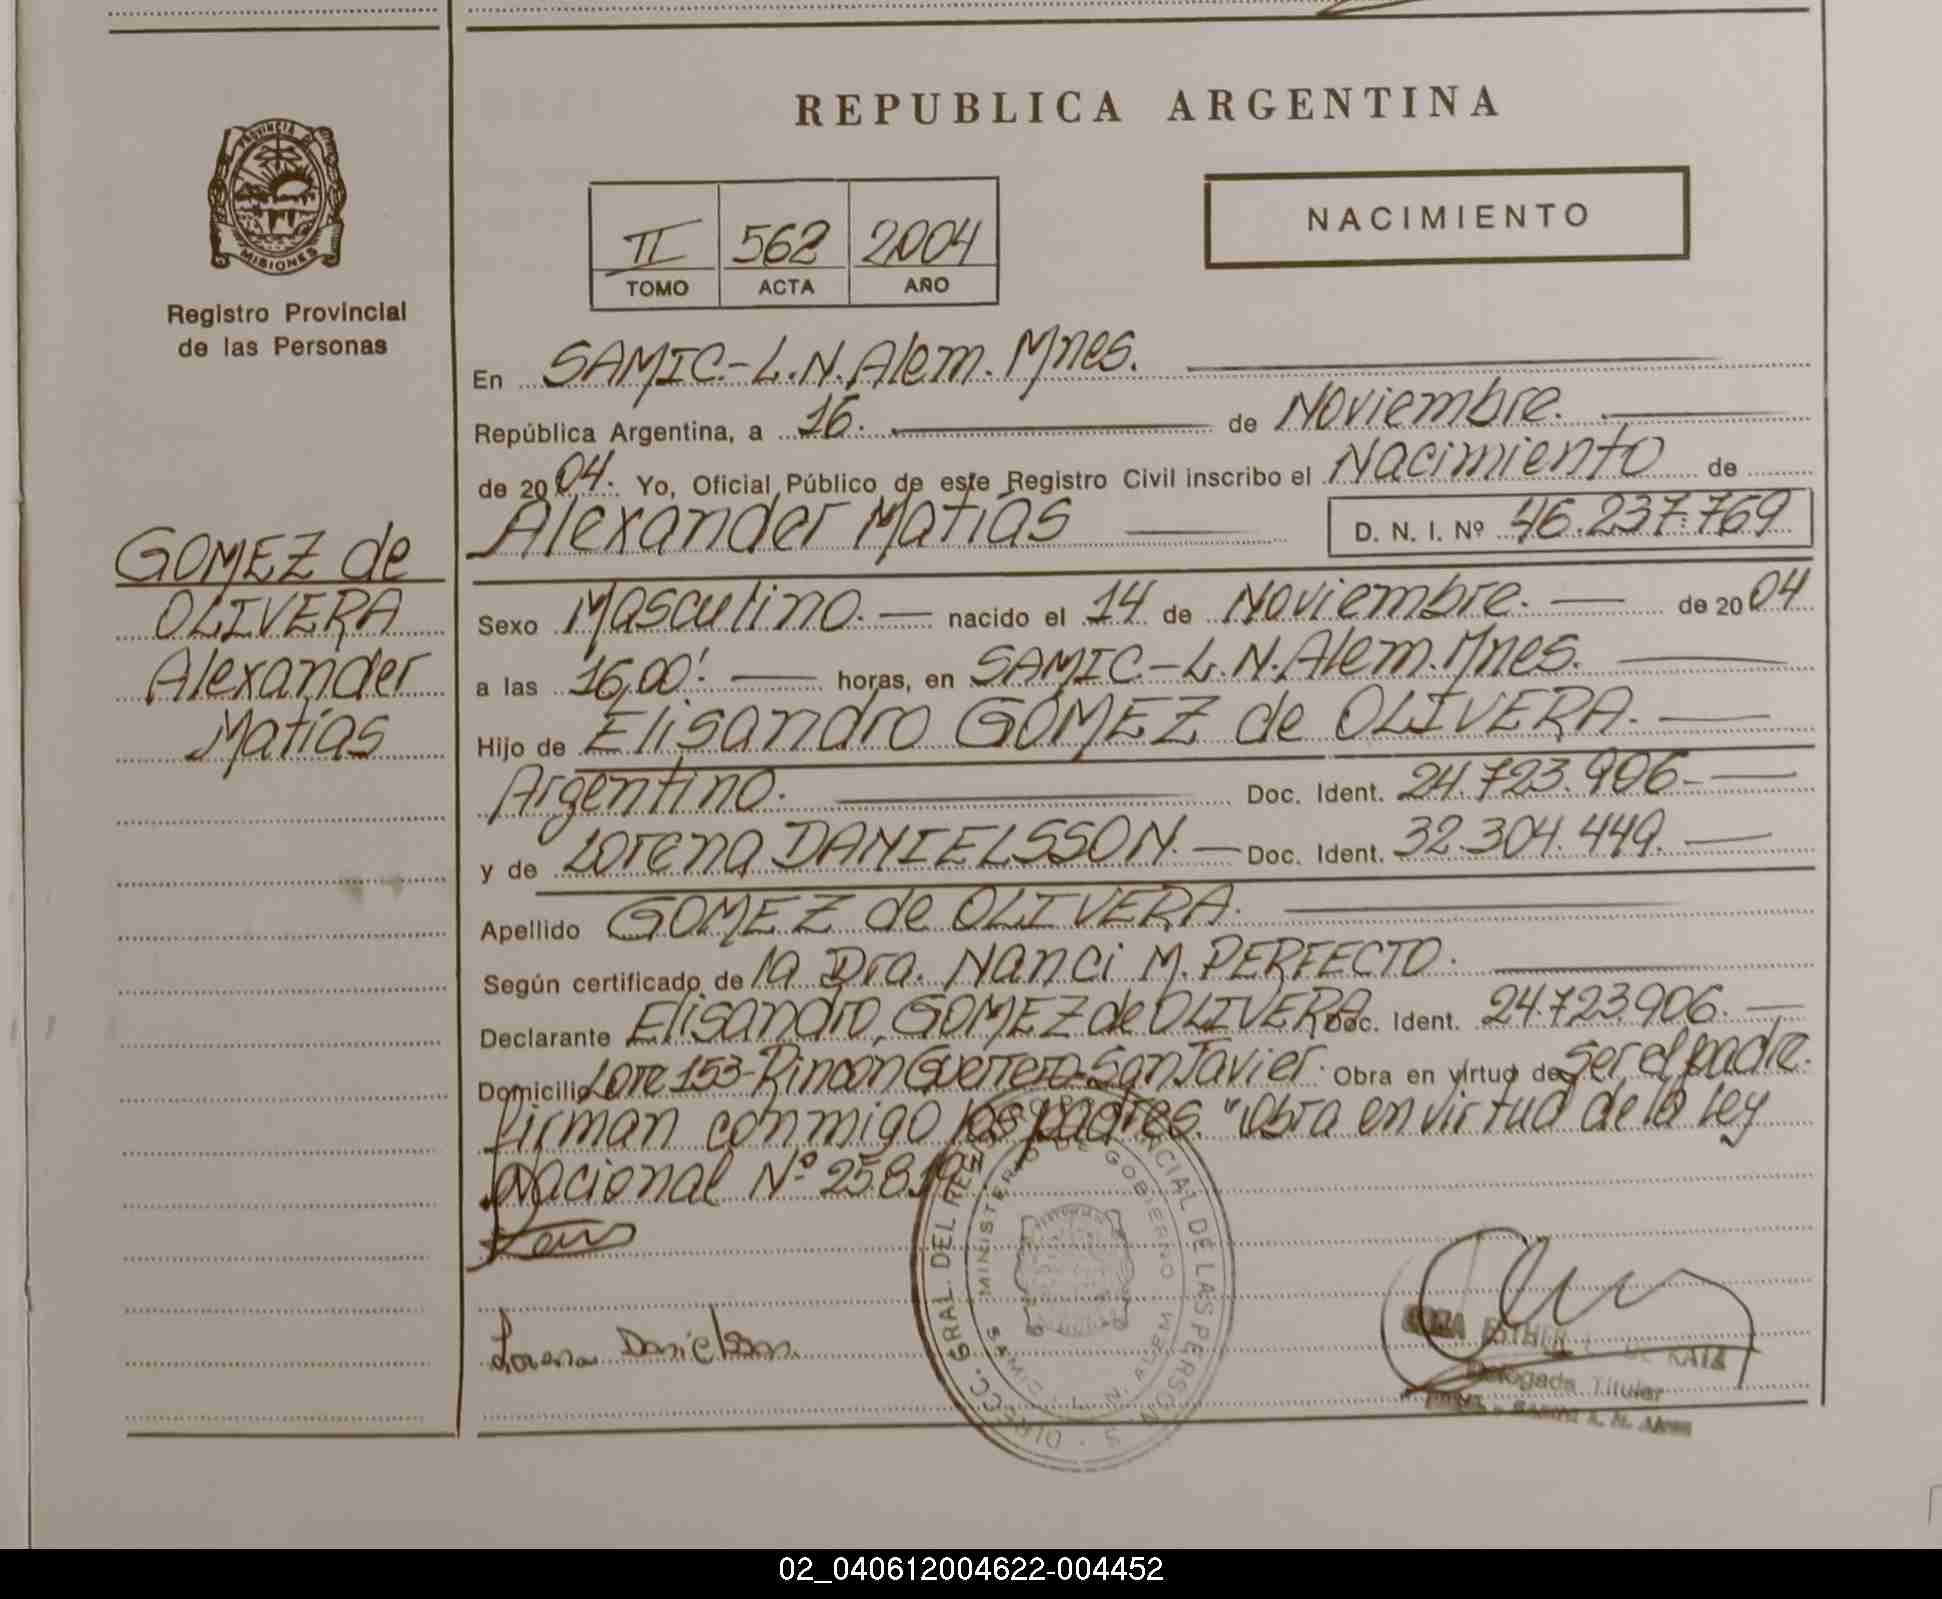 REPUBLICA ARGENTINA
PROVINCIA DE MISIONES
Registro Provincial
de las Personas
II 562 2004
TOMO ACTA AÑO
NACIMIENTO
GOMEZ de
OLIVERA
Alexander
Matías
En SAMIC-L.N.Alem. Mnes.
República Argentina, a 16. de Noviembre.
de 2004. Yo, Oficial Público de este Registro Civil inscribo el Nacimiento de
Alexander Matías D. N. I. Nº 46.237.769
Sexo Masculino. nacido el 14 de Noviembre. de 2004
a las 16,00'. horas, en SAMIC-L.N.Alem. Mnes.
Hijo de Elisandro GOMEZ de OLIVERA.
Argentino. Doc. Ident. 24.723.906-
y de Lorena DANIELSSON. Doc. Ident. 32.304.449.
Apellido GOMEZ de OLIVERA.
Según certificado de la Dra. Nanci M. PERFECTO.
Declarante Elisandro, GOMEZ de OLIVERA Doc. Ident. 24.723.906.
Domicilio Lote 153-Rincon Guerrero-San Javier. Obra en virtud de ser el padre.
firman conmigo los padres. "Obra en virtud de la Ley
Nacional Nº 25.819
Lorena Danielsson.
DIRECC. GRAL. DEL REG. PROVINCIAL DE LAS PERSONAS
MINISTERIO DE GOBIERNO
SAMIC - L. N. ALEM
ESTHER DE KATZ
Delegada Titular
L. N. Alem
02_040612004622-004452